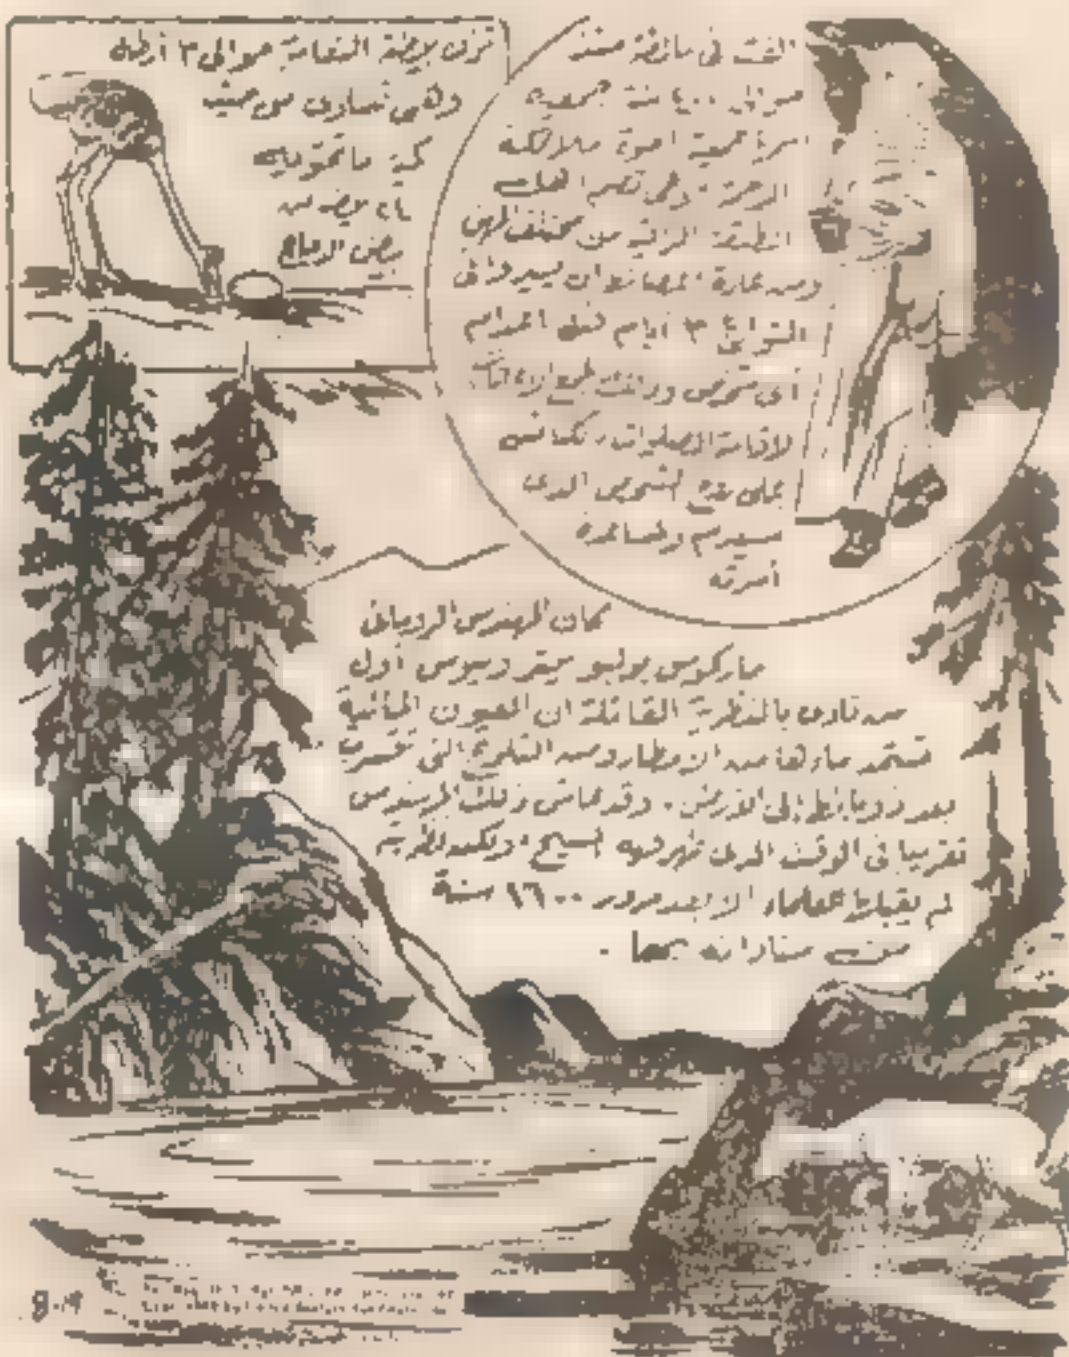 تزن بيضة النعامة حوالى ٣ أرطال
وهى تساوى من حيث
كمية ما تحتويه
بيض الدجاج
ألفت فى مالطة منذ
حوالى ٤٠٠ سنة جمعية
اسمها جمعية اخوة ملائكة
الرحمة وهى تضم
الطبقة الراقية من مختلف المهن
ومن عادة أن يسيروا فى
الشوارع ٣ أيام قبل اعدام
أى شخص وذلك لجمع الاعانات
لاقامة الصلوات
على روح الشخص الذى
سيعدم ولمساعدة
أسرته
كان المهندس الرومانى
ماركوس يوليو ميتروبيوس أول
من نادى بالنظرية القائلة ان العيون المائية
تستمد ماءها من الامطار ومن الثلوج التى تتسرب
بعد ذوبانها إلى الأرض . وقد عاش ذلك المهندس
تقريبا فى الوقت الذى ظهر فيه المسيح ولكن نظريته
لم يقبلها العلماء الا بعد مرور ١٦٠٠ سنة
من مناداته بها .